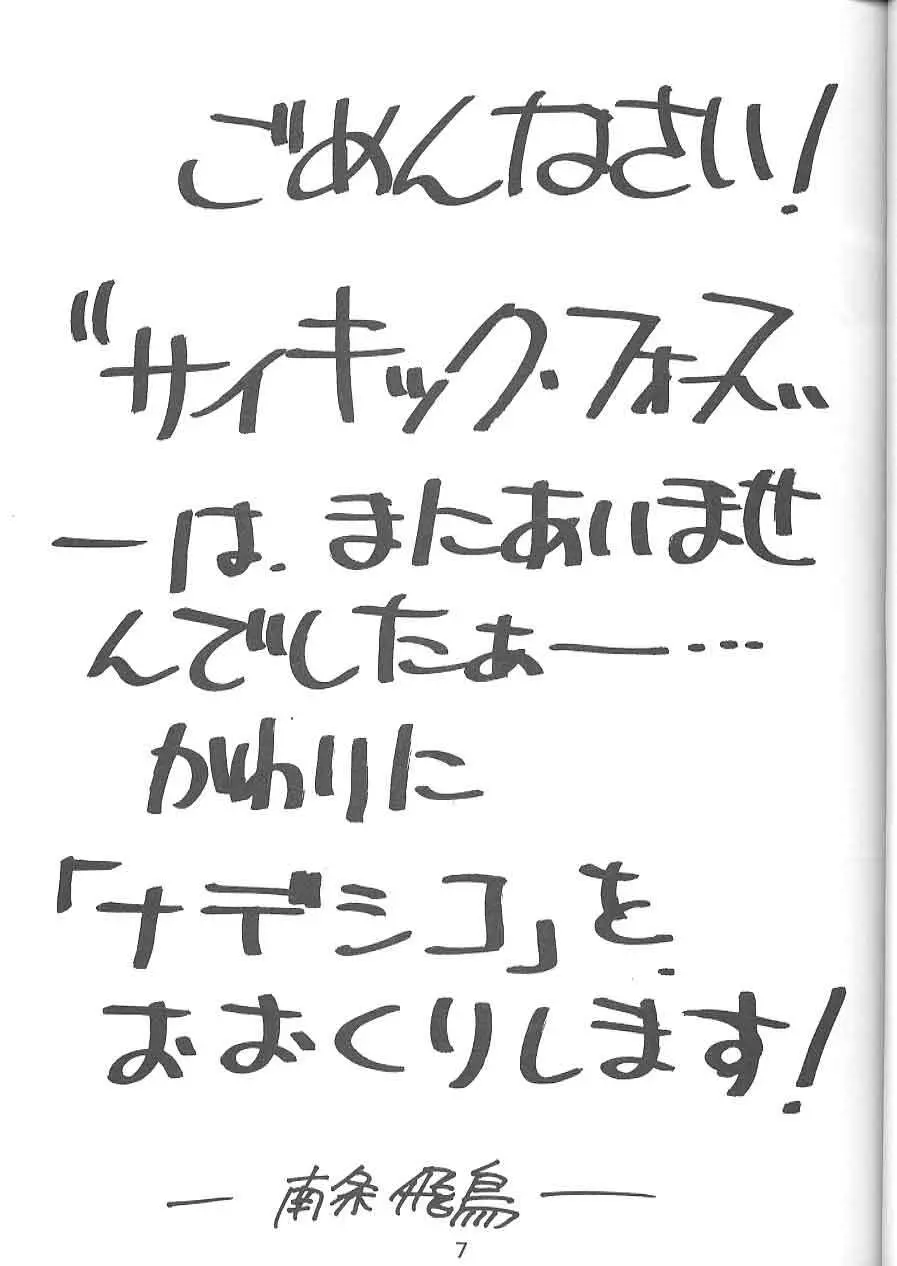 ごめんなさい!
"サイキック・フォース"
ーは、まにあいませ
んでしたぁー…
かわりに
「ナデシコ」を、
おおくりします!
— 南条飛鳥 —
7